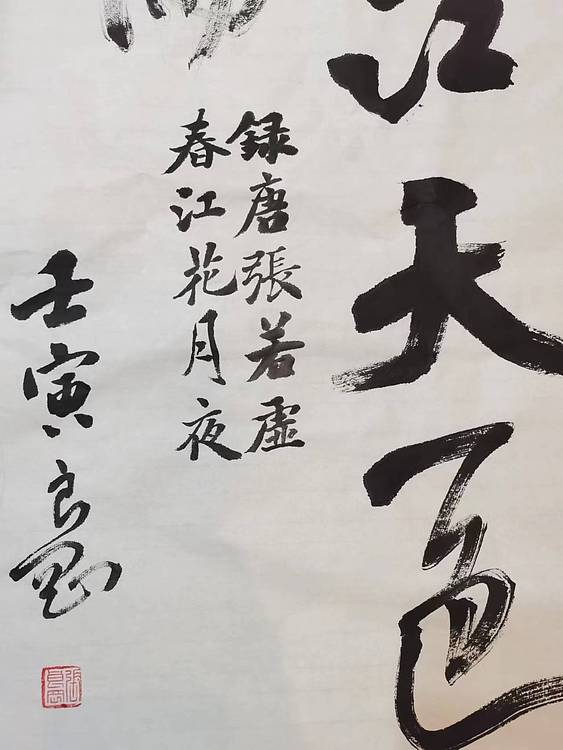 江天一色
録唐張若虚
春江花月夜
壬寅良